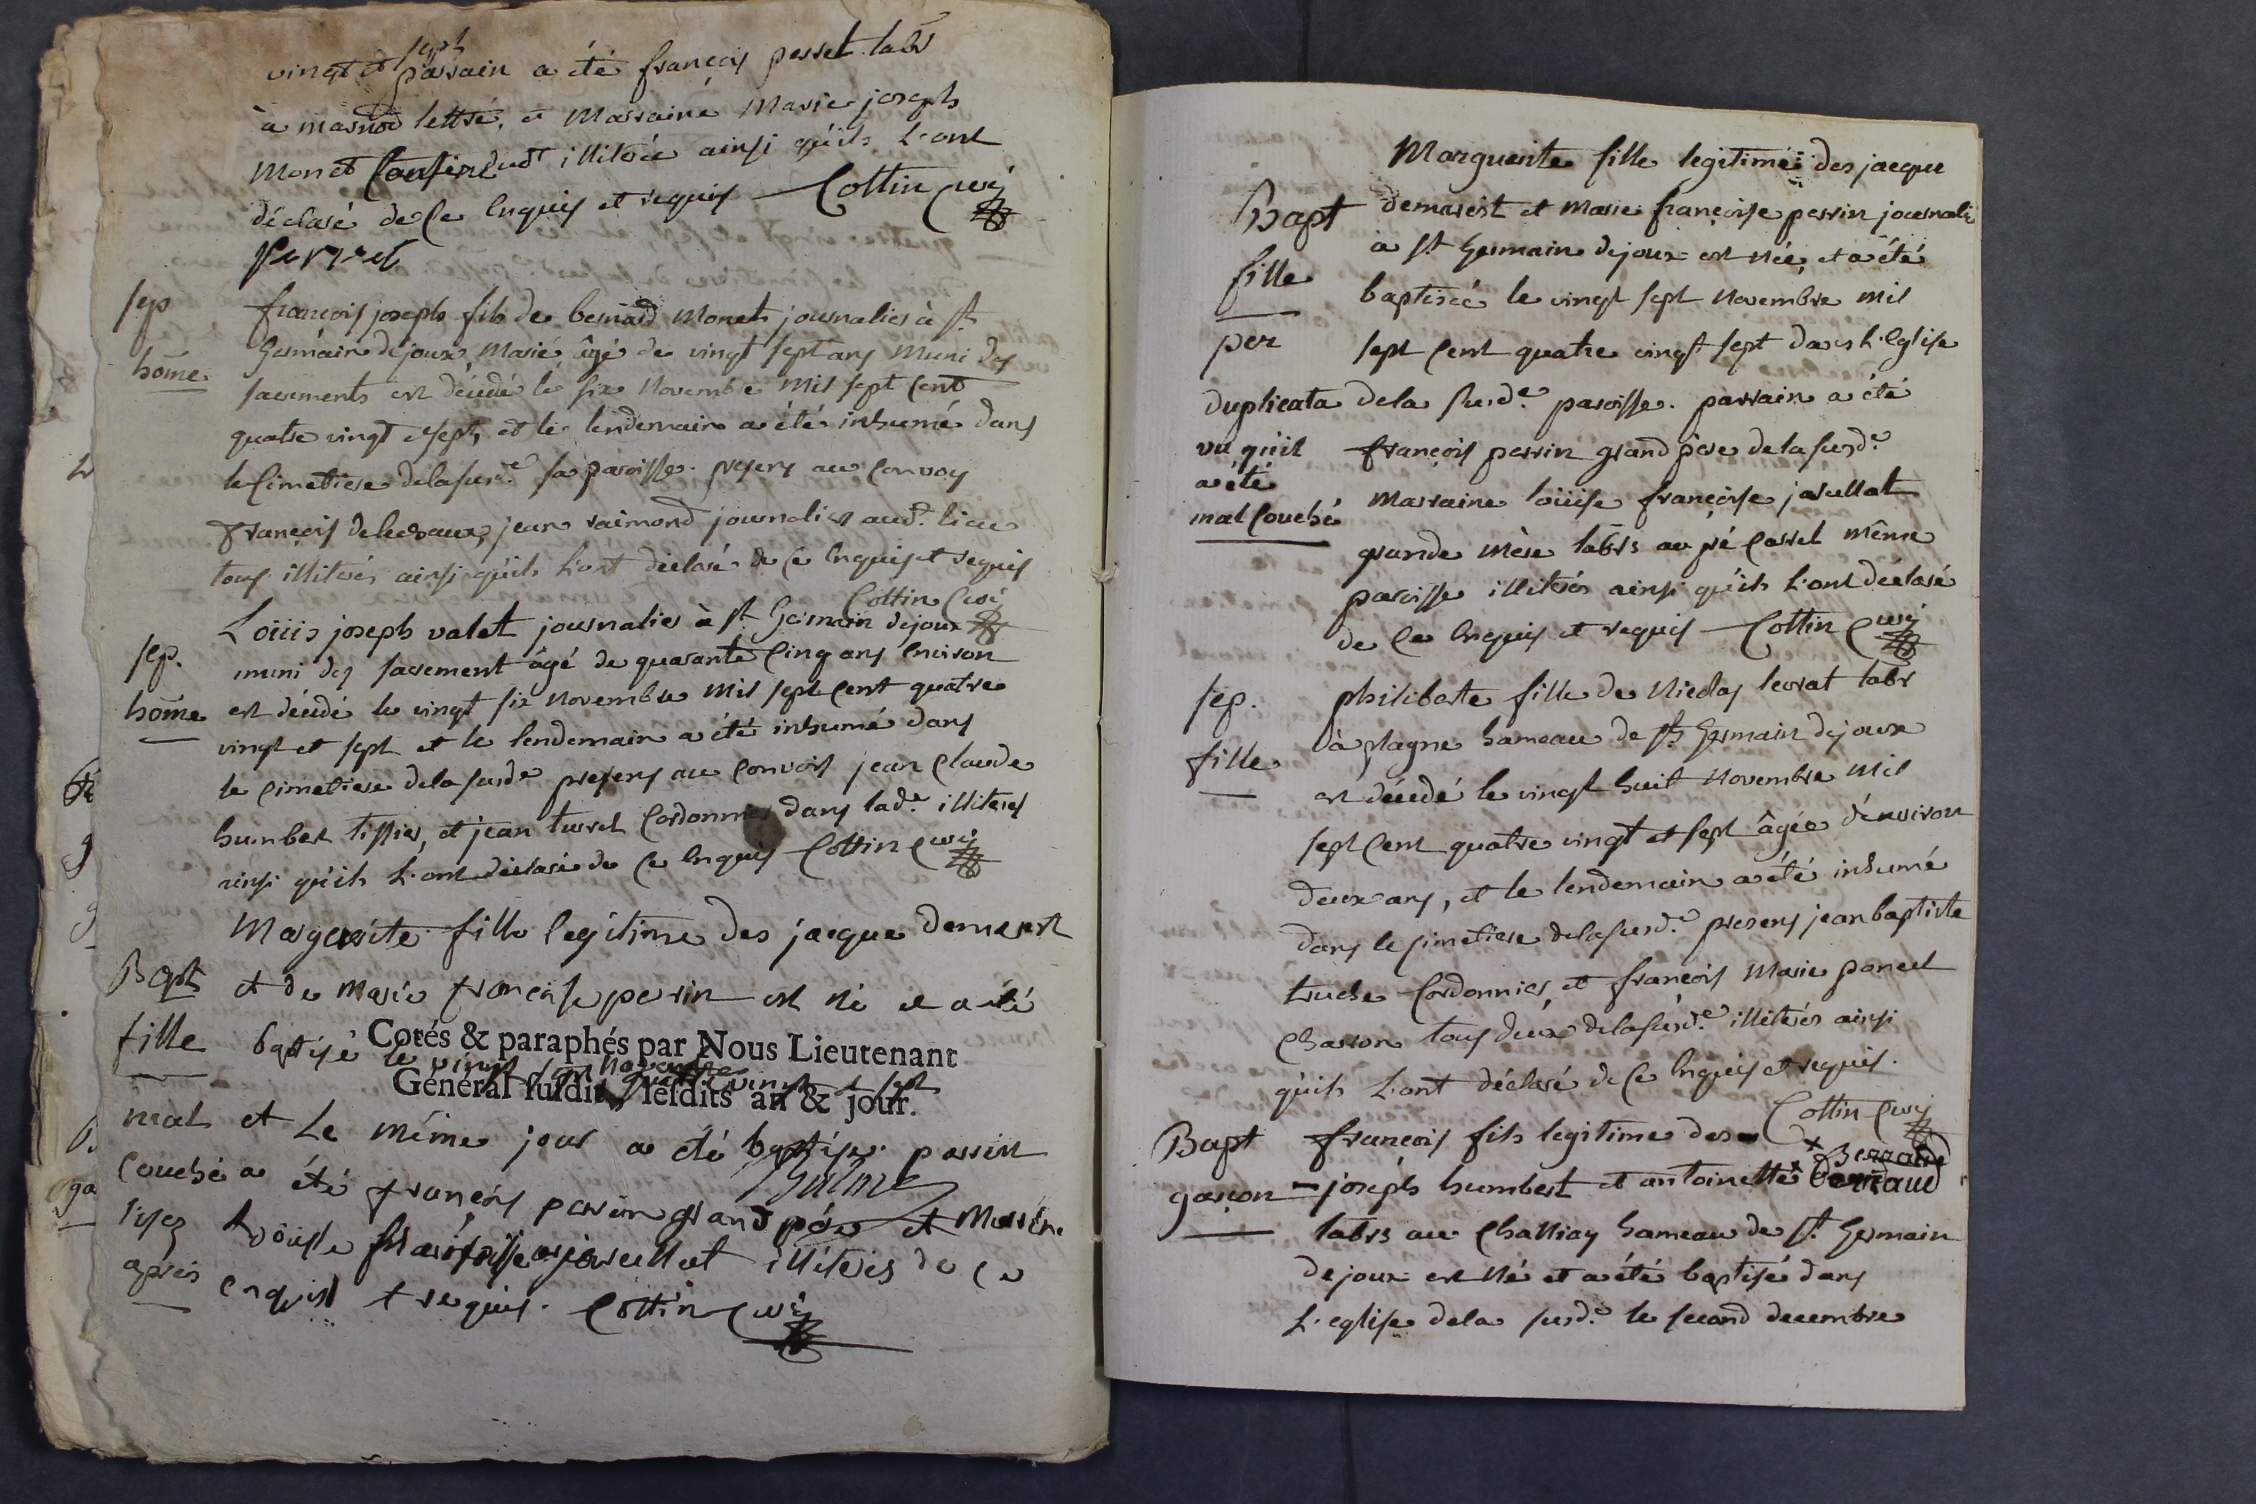 sept
vingt et parrain a été françois perret labr
à marnod lettré, et Marraine Marie joseph
Monet illiterée ainsi qu'ils L'ont
déclaré de Ce Enquis et requis Cottin Curé
perret
sep
home
françois joseph fils de bernard Monet journalier à st
Germain dejoux Marié âgé de vingt sept ans Muni des
sacrements est décédé le six Novembre Mil sept Cent
quatre vingt et sept, et le lendemain a été inhumé dans
le Cimetiere delasusde sa paroisse. presens au Convoy
françois jean raimond journalier audt lieu
tous illiterés ainsi qu'ils L'ont déclaré de Ce Enquis et requis
Cottin Curé
sep.
home
Loüis joseph valet journalier à st Germain dejoux
muni des sacrement âgé de quarante Cinq ans Environ
est décédé le vingt six Novembre Mil sept Cent quatre
vingt et sept et le lendemain a été inhumé dans
le Cimetiere delasusde presens au Convois jean Claude
humbert tissier, et jean turrel Cordonnier dans lade illiterés
ainsi qu'ils L'ont déclaré de Ce Enquis Cottin Curé
Bapt
fille
mal
couché
lisez
après
Marguerite fille legitime des jacque demarest
et de Marie francoise perrin est né et a été
baptisé le vingt sept Novembre
Cotés & paraphés par Nous Lieutenant
quatre vingt et sept
Général susdit, lesdits an & jour.
et Le même jour a été baptise parrin
a été françois perrin grand père et Marréne
Loüise jarullat illiterés de Ce
enquis et requis. Cottin Curé
Bapt
fille
per
duplicata
vu qu'il
a été
mal Couché
Marguerite fille legitime des jacque
demarest et Marie françoise perrin journalie
à st Germain dejoux est Née, et a été
baptisée le vingt sept Novembre Mil
sept Cent quatre vingt sept dans L'Eglise
dela susde paroisse. parrain a été
françois perrin grand père delasusde
Marraine loüise françoise jarullat
grande Mère labrs au pré Carrel même
paroisse illiterés ainsi qu'ils L'ont déclaré
de Ce Enquis et requis Cottin Curé
sep.
fille
philiberte fille de Nicolas levrat labr
à plagne hameau de st Germain dejoux
est décédé le vingt huit Novembre Mil
sept Cent quatre vingt et sept âgée d'environ
deux ans, et le lendemain a été inhumé
dans le Cimetiere delasusde presens jean baptiste
truche Cordonnier, et françois Marie poncet
Charron tous deux delasusde illiterés ainsi
qu'ils L'ont déclaré de Ce Enquis et requis.
Cottin Curé
Bapt
garçon
françois fils legitime des
joseph humbert et antoinette berraud
labrs au Challiay hameau de st Germain
dejoux est Né et a été baptisé dans
L'eglise dela susde le second decembre